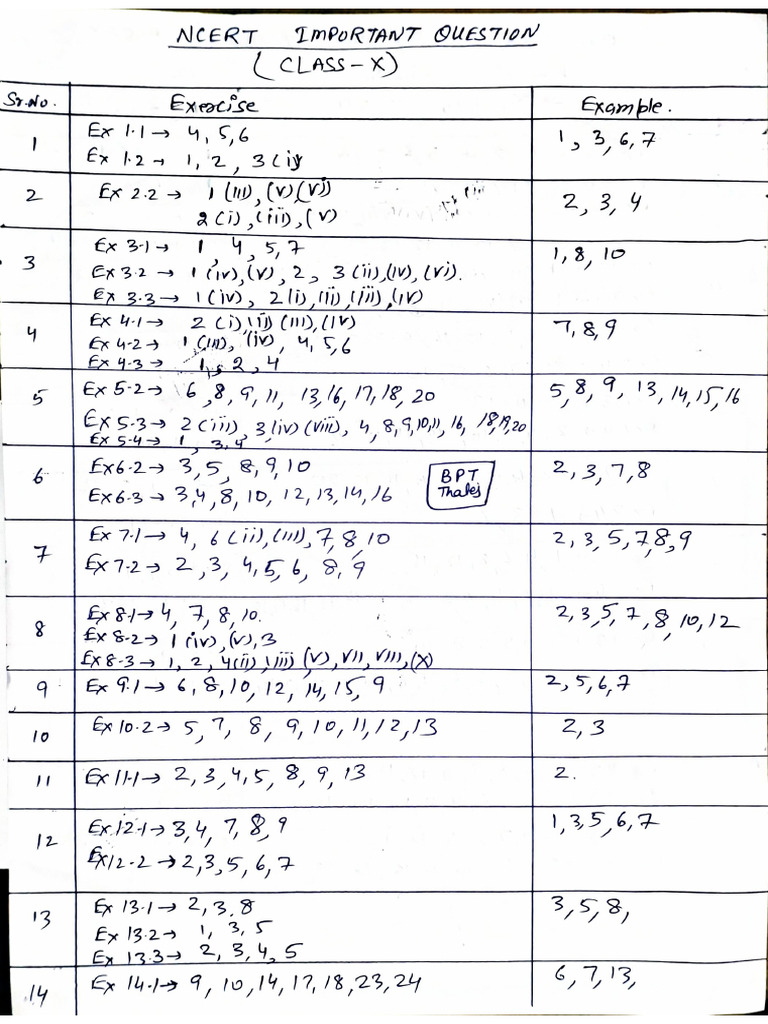 NCERT IMPORTANT QUESTION
(CLASS-X)
Sr.No. Exercise Example.
1 Ex 1.1 → 4, 5, 6 1, 3, 6, 7
Ex 1.2 → 1, 2, 3(i)
2 Ex 2.2 → 1 (III), (V) (Vi) 2, 3, 4
2(i), (iii), (V)
3 Ex 3.1 → 1, 4, 5, 7 1, 8, 10
Ex 3.2 → 1 (iv), (V), 2, 3 (ii), (IV), (Vi).
Ex 3.3 → 1 (iv), 2(i), (ii), (iii), (IV)
4 Ex 4.1 → 2 (i) (ii) (III), (IV) 7, 8, 9
Ex 4.2 → 1 (III), (iv), 4, 5, 6
Ex 4.3 → 1, 2, 4
5 Ex 5.2 → 6, 8, 9, 11, 13, 16, 17, 18, 20 5, 8, 9, 13, 14, 15, 16
Ex 5.3 → 2 (iii), 3 (iv) (viii), 4, 8, 9, 10, 11, 16, 18, 19, 20
Ex 5.4 → 1, 3, 4
6 Ex 6.2 → 3, 5, 8, 9, 10 2, 3, 7, 8
BPT
Thales
Ex 6.3 → 3, 4, 8, 10, 12, 13, 14, 16
7 Ex 7.1 → 4, 6 (ii), (III), 7, 8, 10 2, 3, 5, 7, 8, 9
Ex 7.2 → 2, 3, 4, 5, 6, 8, 9
8 Ex 8.1 → 4, 7, 8, 10. 2, 3, 5, 7, 8, 10, 12
Ex 8.2 → 1 (iv), (V), 3
Ex 8.3 → 1, 2, 4(ii), (iii) (V), VII, VIII, (X)
9 Ex 9.1 → 6, 8, 10, 12, 14, 15, 9 2, 5, 6, 7
10 Ex 10.2 → 5, 7, 8, 9, 10, 11, 12, 13 2, 3
11 Ex 11.1 → 2, 3, 4, 5, 8, 9, 13 2.
12 Ex 12.1 → 3, 4, 7, 8, 9 1, 3, 5, 6, 7
Ex 12.2 → 2, 3, 5, 6, 7
13 Ex 13.1 → 2, 3, 8 3, 5, 8,
Ex 13.2 → 1, 3, 5
Ex 13.3 → 2, 3, 4, 5
14 Ex 14.1 → 9, 10, 14, 17, 18, 23, 24 6, 7, 13,